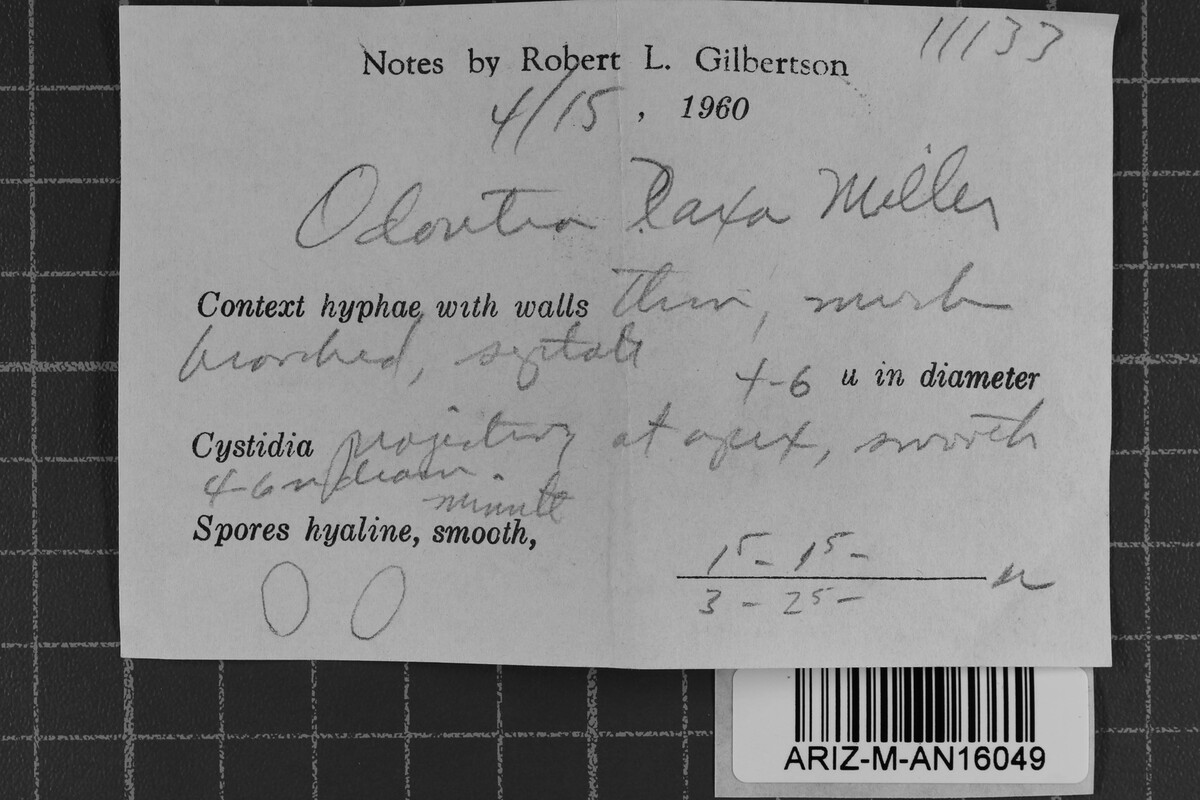 11133
Notes by Robert L. Gilbertson
4/15, 1960
Odontia laxa Miller
Context hyphae with walls thin, much
branched, septate
4-6 u in diameter
Cystidia projecting at apex, smooth
4-6 u diam.
minute
Spores hyaline, smooth,
15- 15-
3 - 25- u
ARIZ-M-AN16049